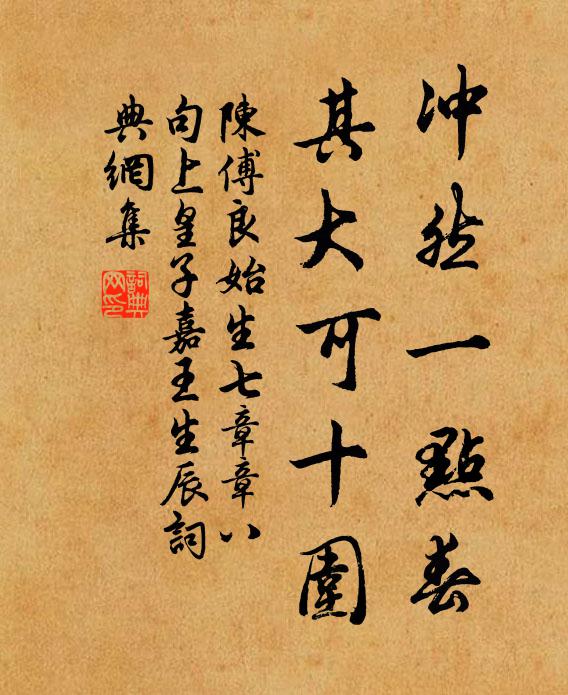 冲然一點春
其大可十圍
陳傅良始生七章章八
句上皇子嘉王生辰詞
典網集
詞典網印